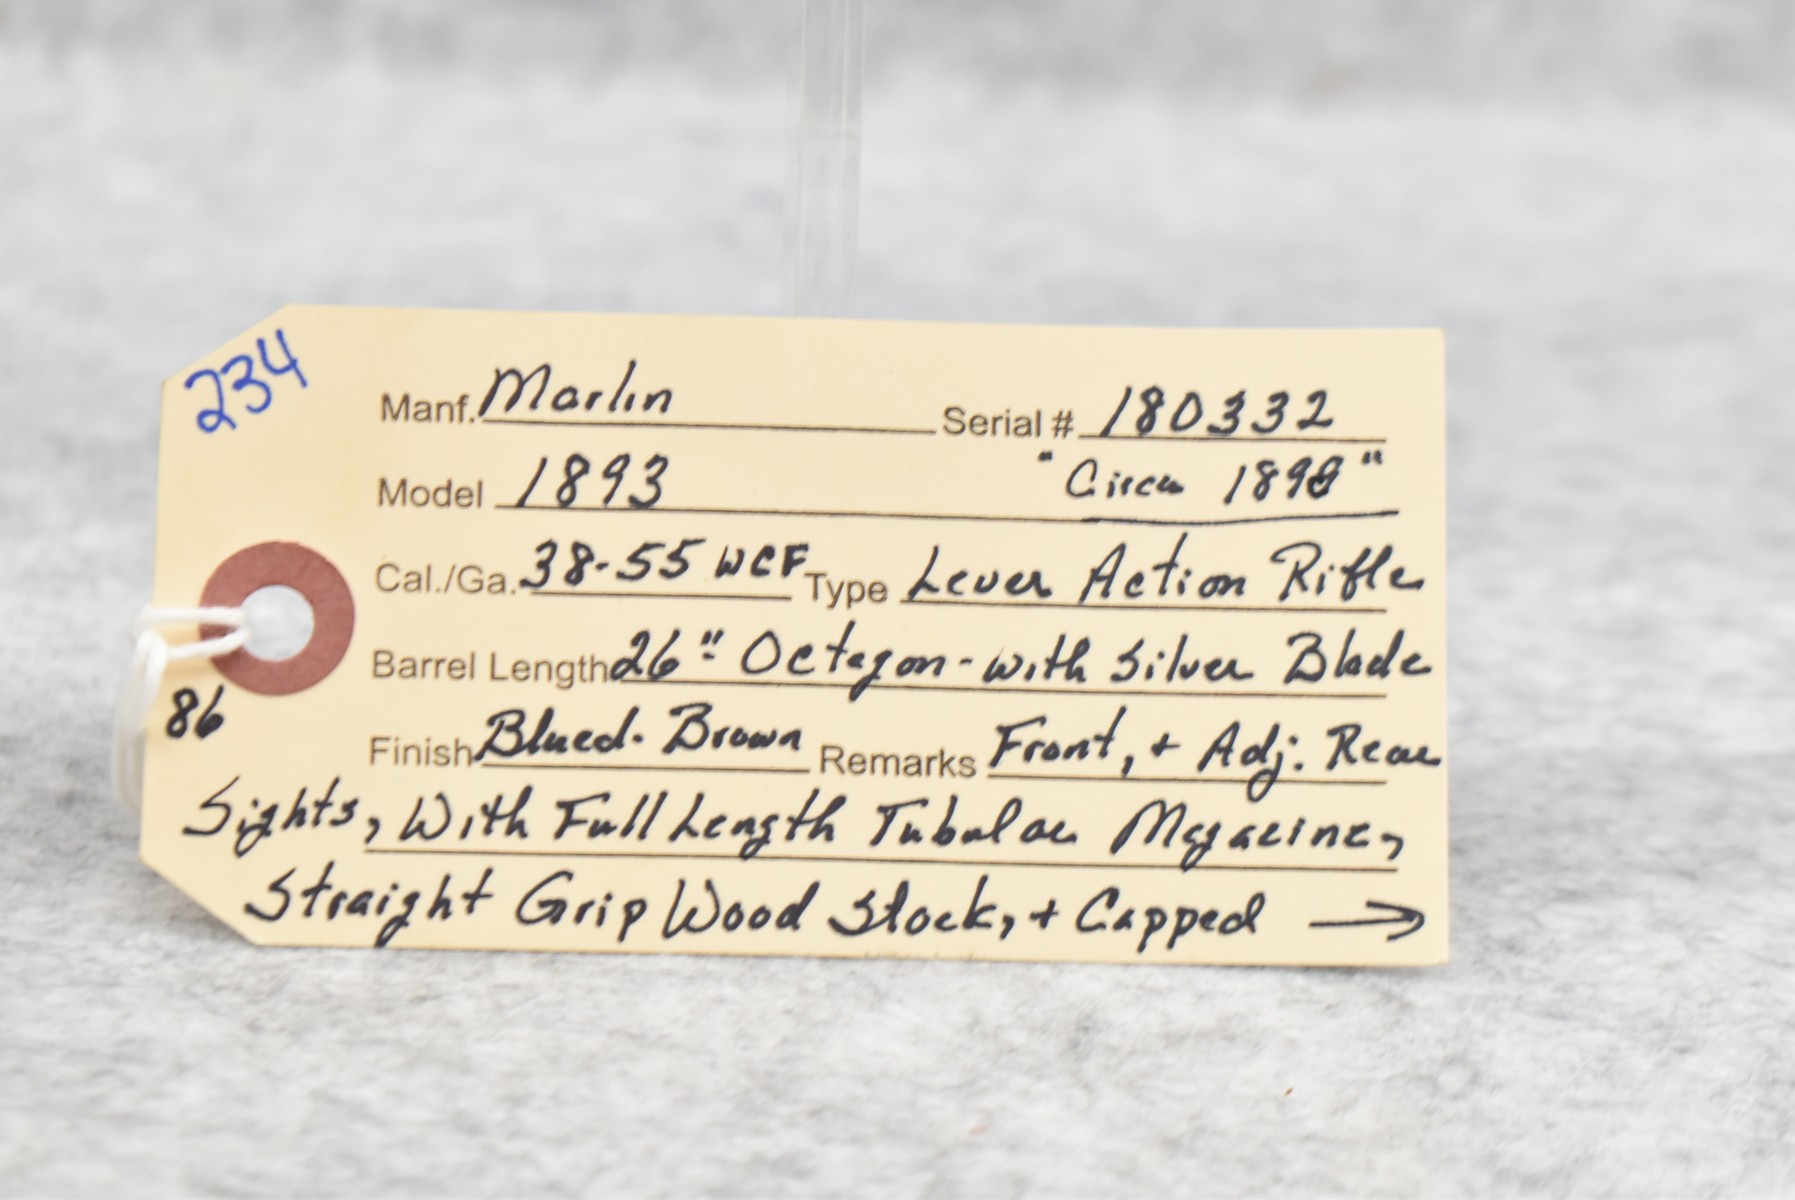 234
Manf. Marlin Serial # 180332
Model 1893 "Circa 1898"
Cal./Ga. 38-55 WCF Type Lever Action Rifle
Barrel Length 26" Octagon - with Silver Blade
86
Finish Blued - Brown Remarks Front, + Adj. Rear
Sights, With Full Length Tubular Magazine,
Straight Grip Wood Stock, + Capped →